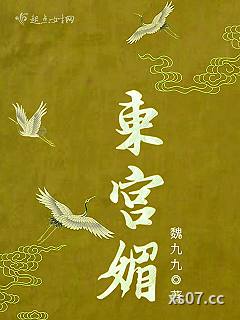 起点女生网
東宮媚
魏九九◎著
x607.cc